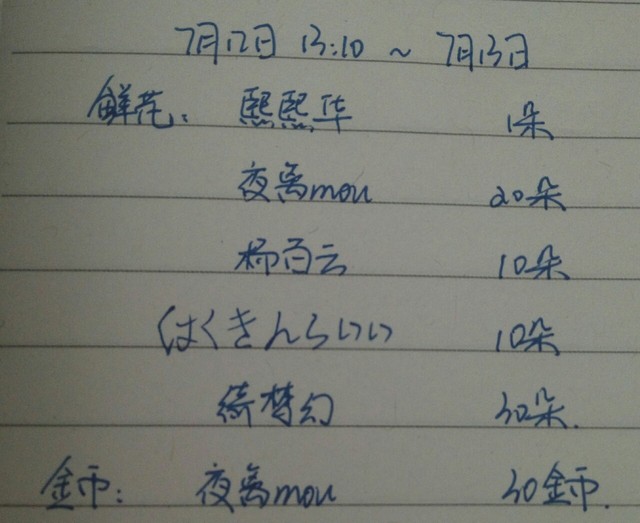 7月12日 13:10 ~ 7月13日
鲜花: 熙熙华 1朵
夜离mou 20朵
柳百云 10朵
はくきんらいい 10朵
绮梦幻 30朵.
金币: 夜离mou 30金币.